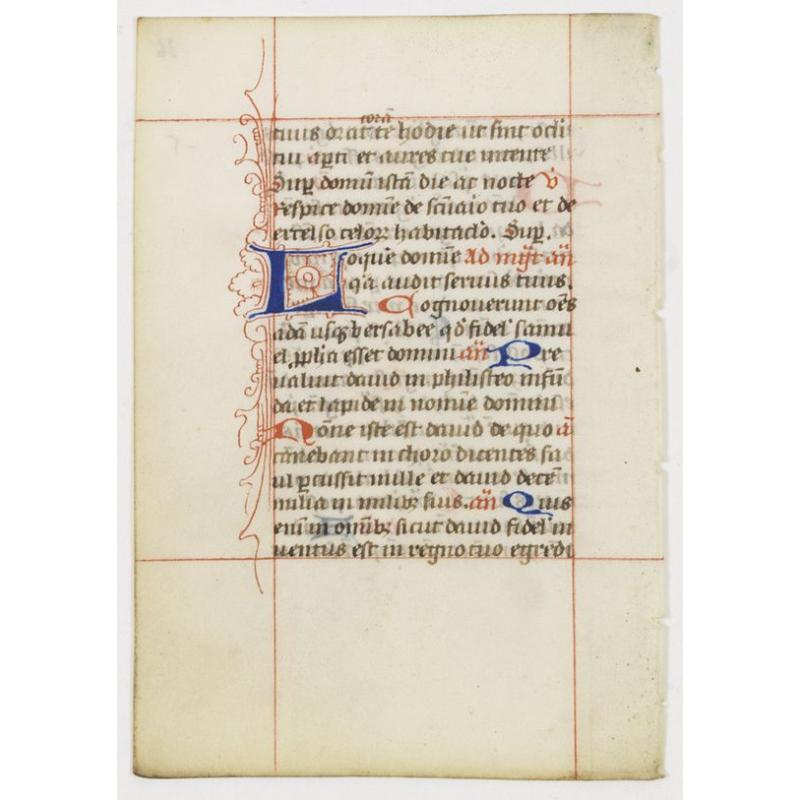 corā
tuus orat te hodie ut sint oculi
tui aꝑti et aures tue intente
Suꝑ domū istā die ac nocte v̄
Respice domīe de scūaio tuo et de
excelso celoꝝ habitaclo. Suꝑ.
Loquē domīe Ad mgt̄ an̄
q̄a audit seruus tuus.
Cognouerunt oēs
a dā usqꝫ bersabee qd̄ fidel' samu
el ꝓphā esset domini an̄ Pre
ualuit dauid in philisteo in fūn
da et lapide in nomīe domini
Nōne iste est dauid de quo a̅
canebant in choro dicentes sa
ul ꝑcussit mille et dauid decē
milia in milibꝫ suis. an̄ Quis
enī in omībꝫ sicut dauid fidel' in
uentus est in regno tuo egredi